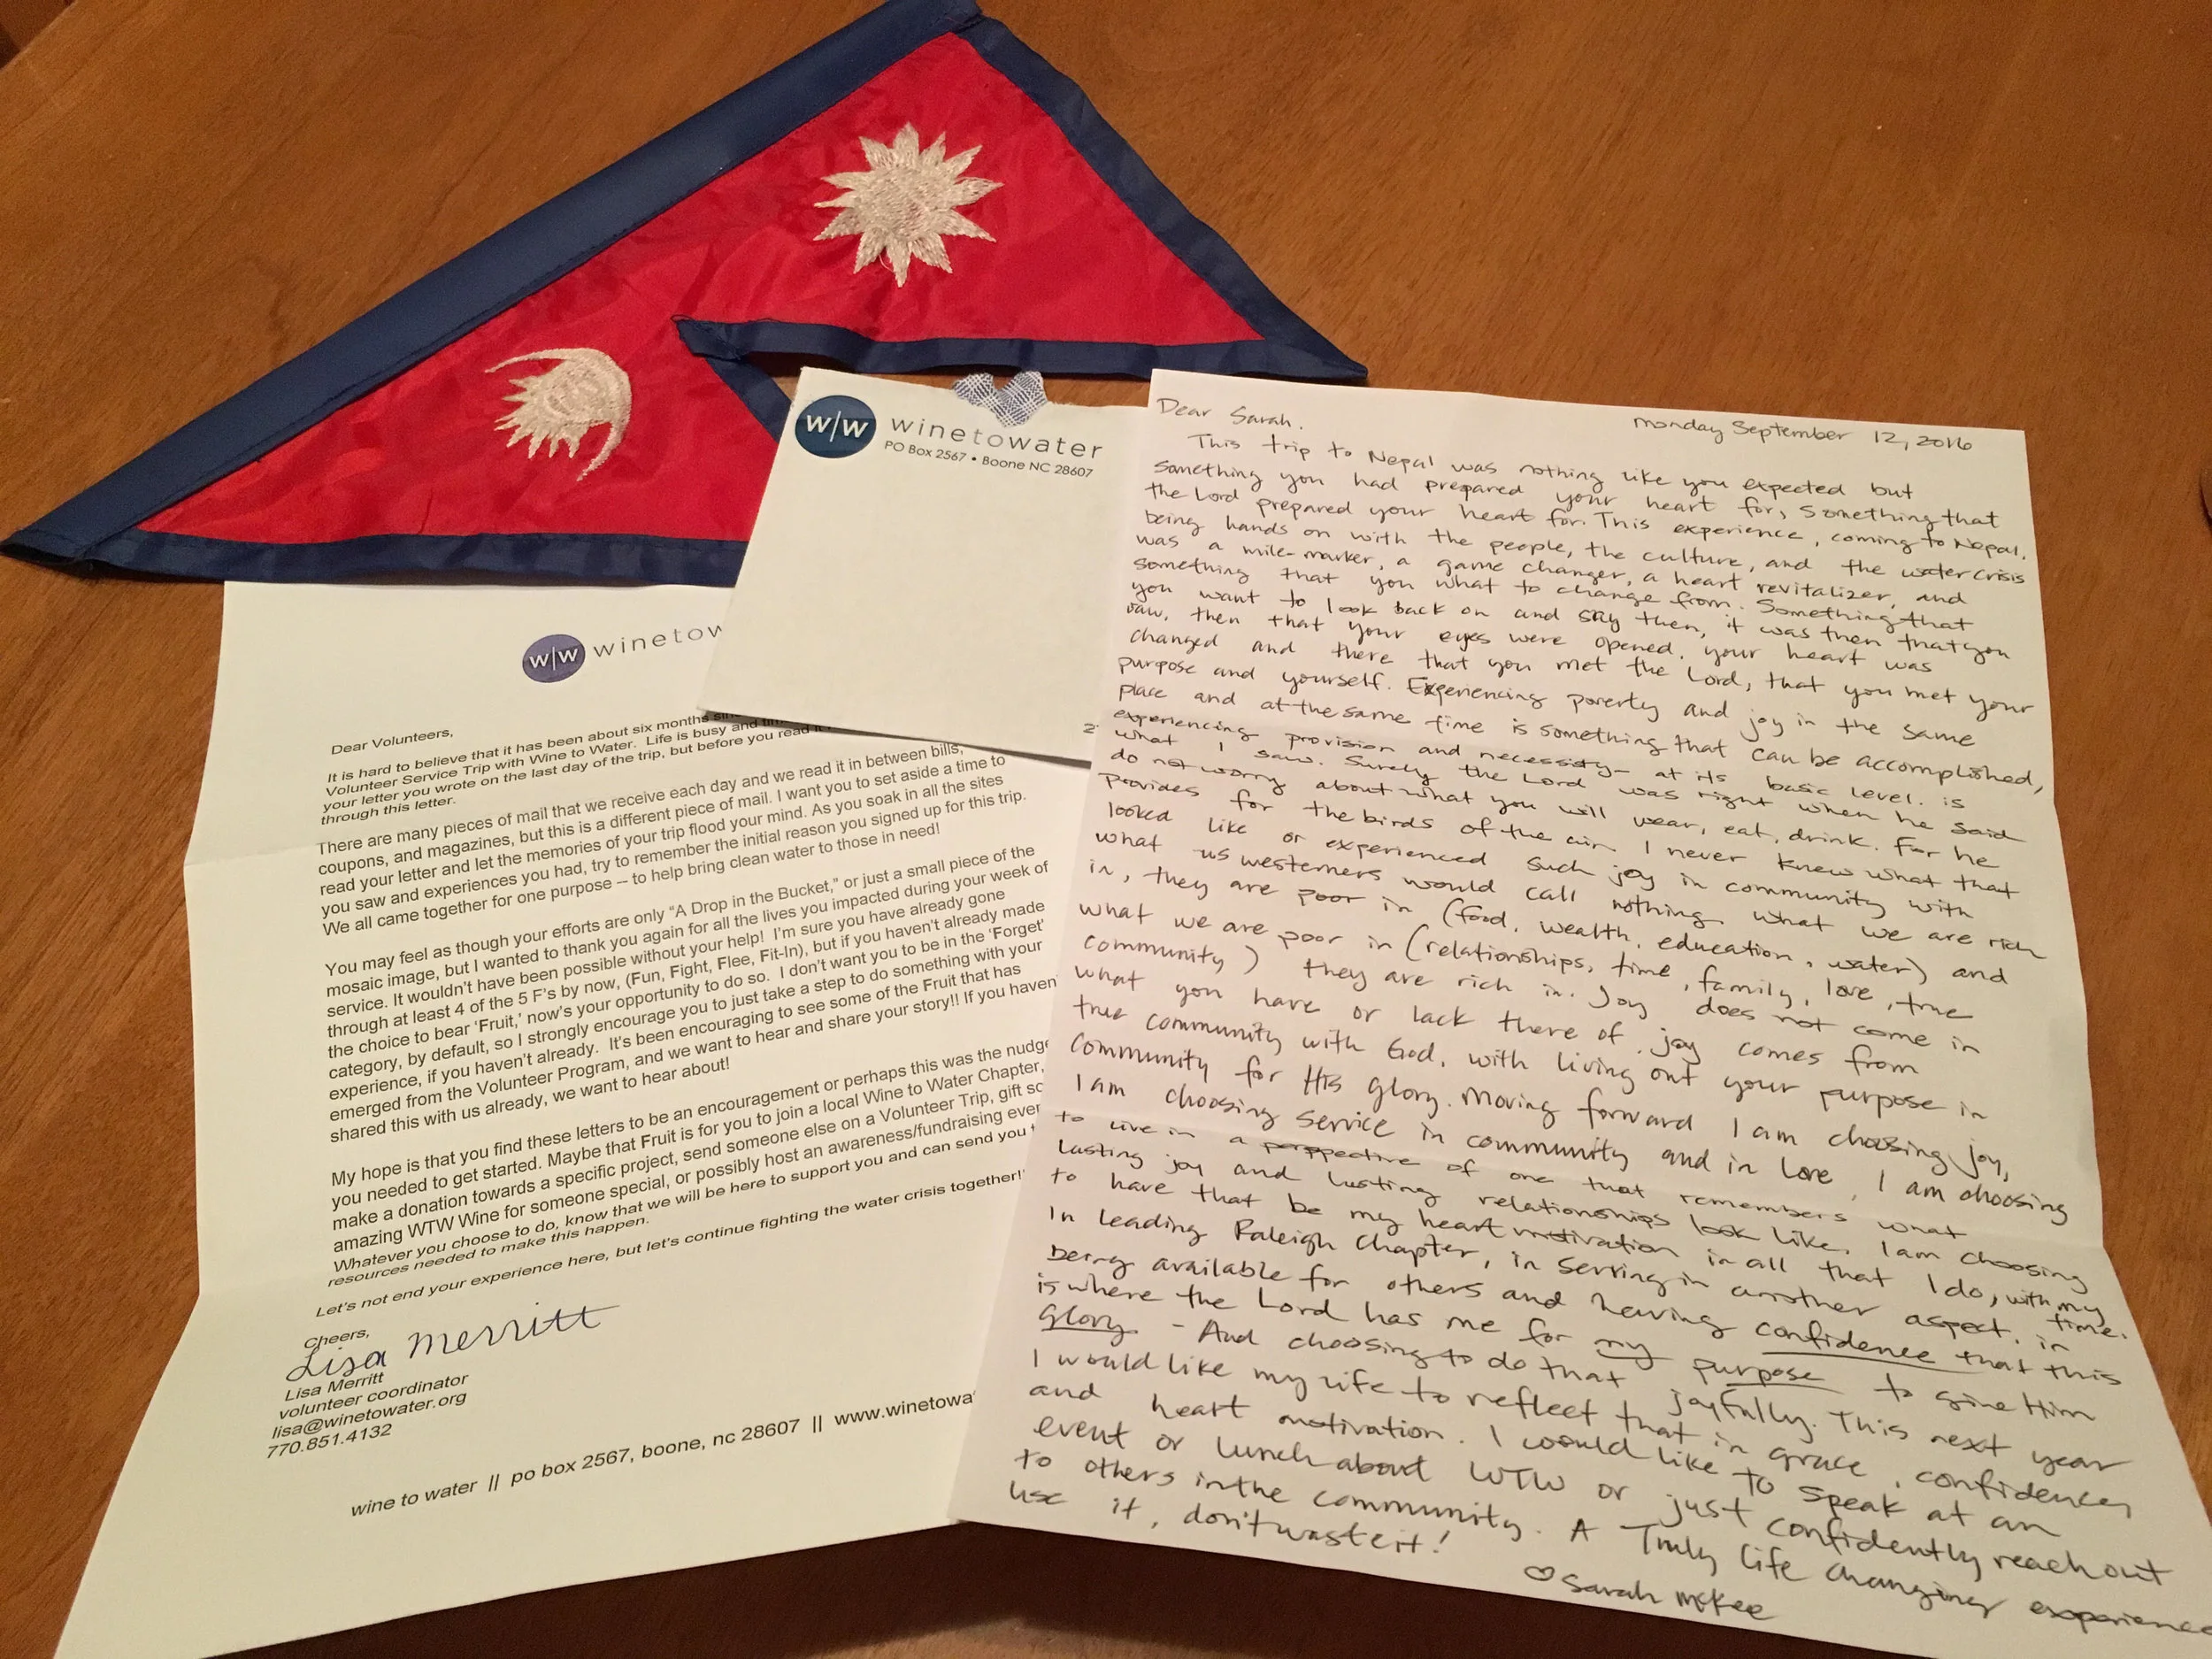 w|w winetowater
PO Box 2567 • Boone NC 28607
w|w winetow
Dear Volunteers,
It is hard to believe that it has been about six months
Volunteer Service Trip with Wine to Water. Life is busy and
your letter you wrote on the last day of the trip, but before you read
through this letter.
There are many pieces of mail that we receive each day and we read it in between bills,
coupons, and magazines, but this is a different piece of mail. I want you to set aside a time to
read your letter and let the memories of your trip flood your mind. As you soak in all the sites
you saw and experiences you had, try to remember the initial reason you signed up for this trip.
We all came together for one purpose – to help bring clean water to those in need!
You may feel as though your efforts are only "A Drop in the Bucket," or just a small piece of the
mosaic image, but I wanted to thank you again for all the lives you impacted during your week of
service. It wouldn't have been possible without your help! I'm sure you have already gone
through at least 4 of the 5 F's by now, (Fun, Fight, Flee, Fit-In), but if you haven't already made
the choice to bear 'Fruit,' now's your opportunity to do so. I don't want you to be in the 'Forget'
category, by default, so I strongly encourage you to just take a step to do something with your
experience, if you haven't already. It's been encouraging to see some of the Fruit that has
emerged from the Volunteer Program, and we want to hear and share your story!! If you haven
shared this with us already, we want to hear about!
My hope is that you find these letters to be an encouragement or perhaps this was the nudge
you needed to get started. Maybe that Fruit is for you to join a local Wine to Water Chapter,
make a donation towards a specific project, send someone else on a Volunteer Trip, gift so
amazing WTW Wine for someone special, or possibly host an awareness/fundraising ever
Whatever you choose to do, know that we will be here to support you and can send you
resources needed to make this happen.
Let's not end your experience here, but let's continue fighting the water crisis together!
Cheers,
Lisa Merritt
Lisa Merritt
volunteer coordinator
lisa@winetowater.org
770.851.4132
wine to water || po box 2567, boone, nc 28607 || www.winetowa
Monday September 12, 2016
Dear Sarah,
This trip to Nepal was nothing like you expected but
something you had prepared your heart for, something that
the Lord prepared your heart for. This experience, coming to Nepal,
being hands on with the people, the culture, and the water crisis
was a mile-marker, a game changer, a heart revitalizer, and
something that you what to change from. Something that
you want to look back on and say then, it was then that you
saw, then that your eyes were opened, your heart was
changed and there that you met the Lord, that you met your
purpose and yourself. Experiencing poverty and joy in the same
place and at the same time is something that can be accomplished,
experiencing provision and necessity - at its basic level. is
what I saw. Surely the Lord was right when he said
do not worry about what you will wear, eat, drink. For he
provides for the birds of the air. I never knew what that
looked like or experienced such joy in community with
what us westerners would call nothing. What we are rich
in, they are poor in (food, wealth, education, water) and
what we are poor in (relationships, time, family, love, true
community) they are rich in. Joy does not come in
what you have or lack there of, joy comes from
true community with God, with living out your purpose in
community for His glory. Moving forward I am choosing joy,
I am choosing service in community and in love, I am choosing
to live in a perspective of one that remembers what
lasting joy and lasting relationships look like. I am choosing
to have that be my heart motivation in all that I do, with my time.
In leading Raleigh Chapter, in serving in another aspect, in
being available for others and having confidence that this
is where the Lord has me for my purpose to give Him
Glory. - And choosing to do that joyfully. This next year
I would like my life to reflect that in grace, confidence,
and heart motivation. I would like to speak at an
event or lunch about WTW or just confidently reach out
to others in the community. A Truly life changing experience
use it, don't waste it!
♡ Sarah McKee